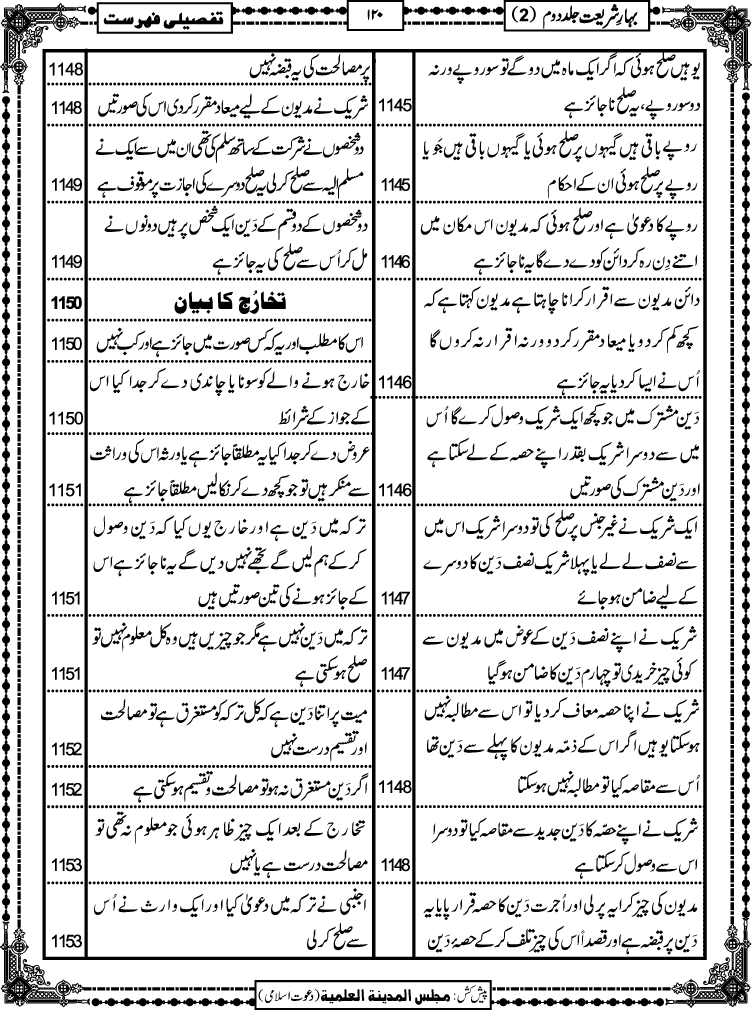 بہارِشریعت جلددوم (2)
۱۲۰
تفصیلی فہرست
یوہیں صلح ہوئی کہ اگر ایک ماہ میں دوگے تو سو روپے ورنہ
دوسو روپے، یہ صلح ناجائز ہے 1145
روپے باقی ہیں گیہوں پر صلح ہوئی یا گیہوں باقی ہیں جَو یا
روپے پر صلح ہوئی ان کے احکام 1145
روپے کا دعویٰ ہے اور صلح ہوئی کہ مدیون اس مکان میں
اتنے دِن رہ کر دائن کو دے دے گا یہ ناجائز ہے 1146
دائن مدیون سے اقرار کرانا چاہتا ہے مدیون کہتا ہے کہ
کچھ کم کردو یا میعاد مقرر کردو ورنہ اقرار نہ کروں گا
اُس نے ایسا کردیا یہ جائز ہے 1146
دَین مشترک میں جو کچھ ایک شریک وصول کرے گا اُس
میں سے دوسرا شریک بقدر اپنے حصہ کے لے سکتا ہے
اور دَین مشترک کی صورتیں 1146
ایک شریک نے غیر جنس پر صلح کی تو دوسرا شریک اس میں
سے نصف لے لے یا پہلا شریک نصف دَین کا دوسرے
کے لیے ضامن ہوجائے 1147
شریک نے اپنے نصف دَین کے عوض میں مدیون سے
کوئی چیز خریدی تو چہارم دَین کا ضامن ہوگیا 1147
شریک نے اپنا حصہ معاف کردیا تو اس سے مطالبہ نہیں
ہوسکتا یوہیں اگر اس کے ذمّہ مدیون کا پہلے سے دَین تھا
اُس سے مقاصہ کیا تو مطالبہ نہیں ہوسکتا 1148
شریک نے اپنے حصّہ کا دَین جدید سے مقاصہ کیا تو دوسرا
اس سے وصول کرسکتا ہے 1148
مدیون کی چیز کرایہ پر لی اور اُجرت دَین کا حصہ قرار پایا یہ
دَین پر قبضہ ہے اور قصداً اس کی چیز تلف کرکے حصۂ دَین
پر مصالحت کی یہ قبضہ نہیں 1148
شریک نے مدیون کے لیے میعاد مقرر کردی اس کی صورتیں 1148
دوشخصوں نے شرکت کے ساتھ سلم کی تھی ان میں سے ایک نے
مسلم الیہ سے صلح کرلی یہ صلح دوسرے کی اجازت پر موقوف ہے 1149
دوشخصوں کے دو قسم کے دَین ایک شخص پر ہیں دونوں نے
مل کر اُس سے صلح کی یہ جائز ہے 1149
تخارُج کا بیان 1150
اس کا مطلب اور یہ کہ کس صورت میں جائز ہے اور کب نہیں 1150
خارج ہونے والے کو سونا یا چاندی دے کر جدا کیا اس
کے جواز کے شرائط 1150
عروض دے کر جدا کیا یہ مطلقاً جائز ہے یا ورثہ اس کی وراثت
سے منکر ہیں تو جو کچھ دے کر نکالیں مطلقاً جائز ہے 1151
ترکہ میں دَین ہے اور خارج یوں کیا کہ دَین وصول
کرکے ہم لیں گے تجھے نہیں دیں گے یہ ناجائز ہے اس
کے جائز ہونے کی تین صورتیں ہیں 1151
ترکہ میں دَین نہیں ہے مگر جو چیزیں ہیں وہ کل معلوم نہیں تو
صلح ہوسکتی ہے 1151
میت پر اتنا دَین ہے کہ کل ترکہ کو مستغرق ہے تو مصالحت
اور تقسیم درست نہیں 1152
اگر دَین مستغرق نہ ہو تو مصالحت و تقسیم ہوسکتی ہے 1152
تخارج کے بعد ایک چیز ظاہر ہوئی جو معلوم نہ تھی تو
مصالحت درست ہے یا نہیں 1153
اجنبی نے ترکہ میں دعویٰ کیا اور ایک وارث نے اُس
سے صلح کرلی 1153
پیش کش: مجلس المدینۃ العلمیۃ (دعوتِ اسلامی)